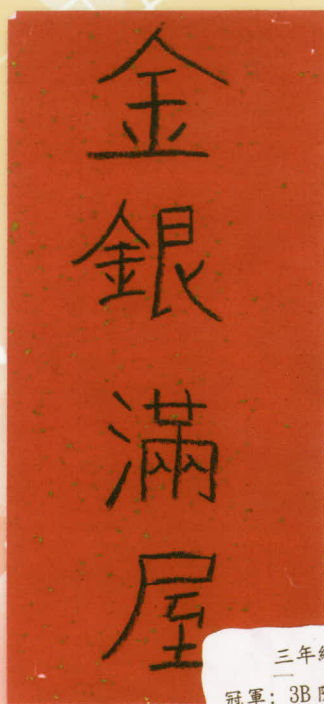 金銀滿屋
三年
冠軍: 3B